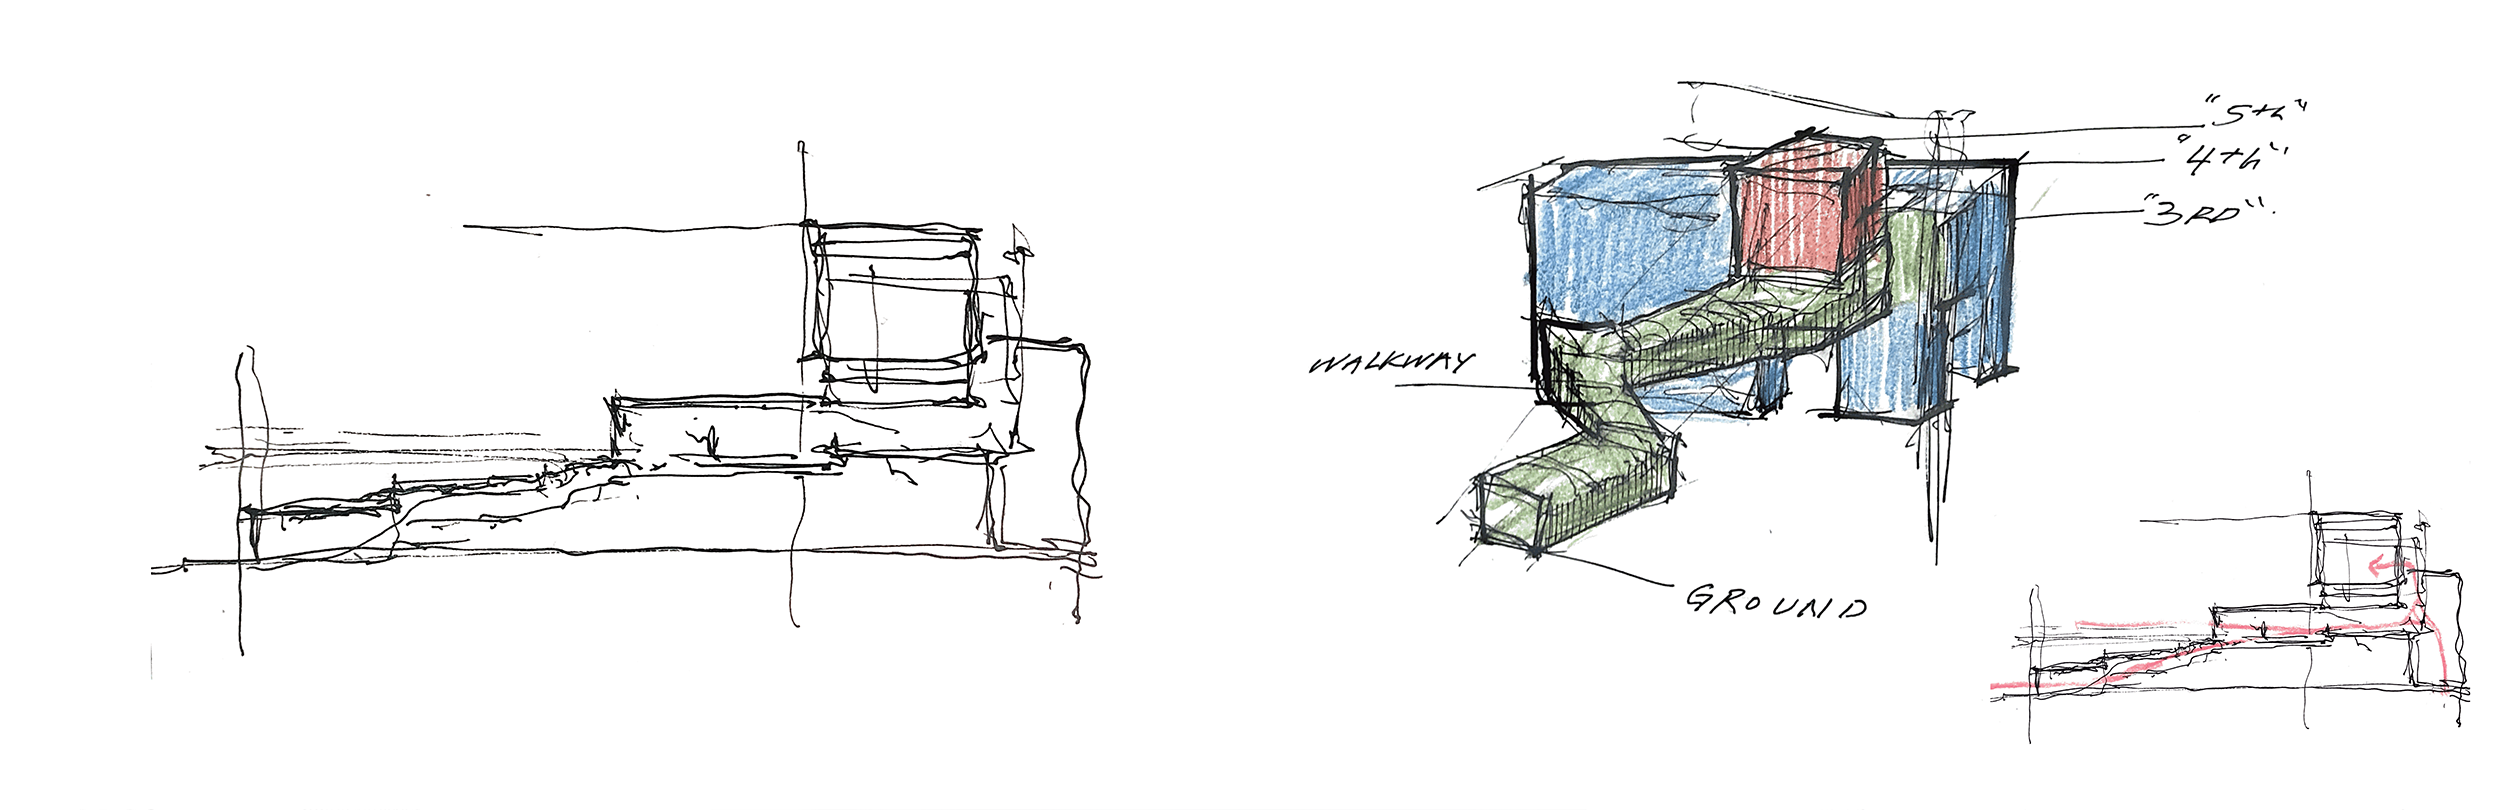 "5th"
"4th"
"3RD".
WALKWAY
GROUND